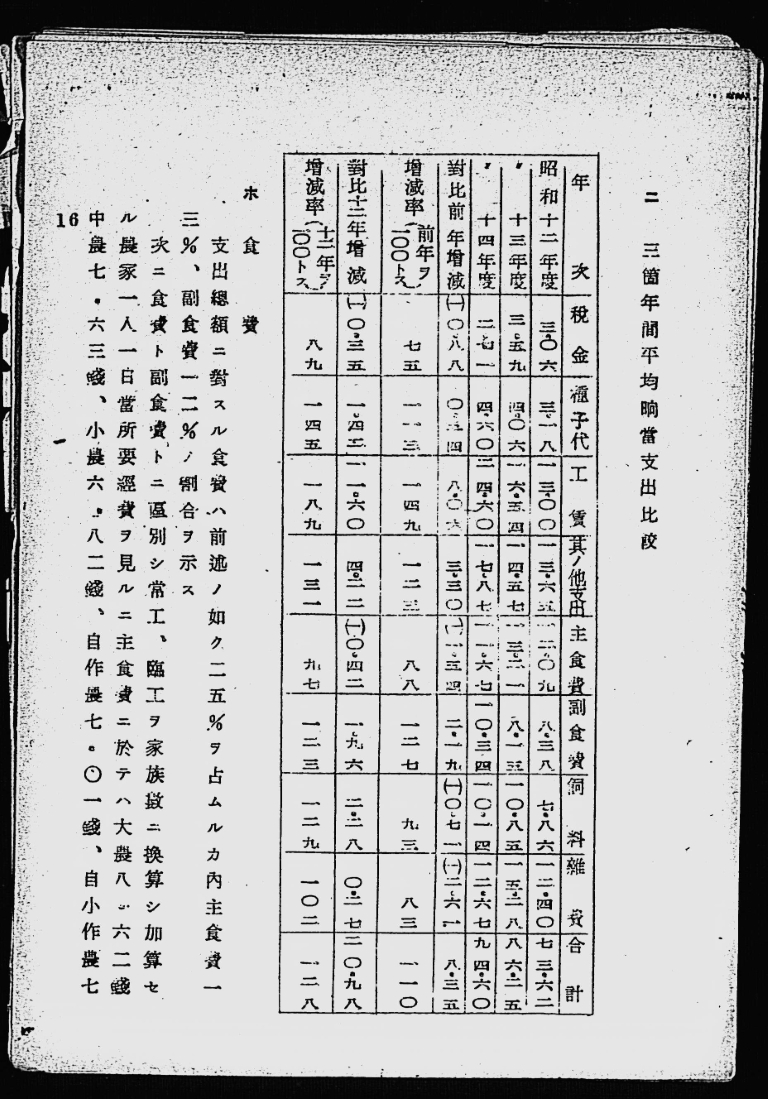 ニ 三箇年間平均晌當支出比較
年次 税金 種子代 工賃 其ノ他支出 主食費 副食費 飼料 雜費 合計
昭和十二年度 三・〇六 三・一八 一三・〇〇 一三・六五 一二・〇九 八・三八 七・八六 一二・四〇 七三・六二
〃 十三年度 三・五九 四・〇六 一六・五四 一四・五七 一三・二一 八・一五 一〇・八五 一五・二八 八六・二五
〃 十四年度 二・七一 四・六〇 二四・六〇 一七・八七 一一・六七 一〇・三四 一〇・一四 一二・六七 九四・六〇
對比前年增減 (一)〇・八八 〇・五四 八・〇六 三・三〇 (一)一・五四 二・一九 (一)〇・七一 (一)二・六一 八・三五
增減率(前年ヲ一〇〇トス) 七五 一一三 一四九 一二三 八八 一二七 九三 八三 一一〇
對比十二年增減 (一)〇・三五 一・四二 一一・六〇 四・二二 (一)〇・四二 一・九六 二・二八 〇・二七 二〇・九八
增減率(十二年ヲ一〇〇トス) 八九 一四五 一八九 一三一 九七 一二三 一二九 一〇二 一二八
ホ 食費
支出總額ニ對スル食費ハ前述ノ如ク二五%ヲ占ムルカ內主食費一
三%、副食費一二%ノ割合ヲ示ス
次ニ食費ト副食費トニ區別シ常工、臨工ヲ家族數ニ換算シ加算セ
ル農家一人一日當所要經費ヲ見ルニ主食費ニ於テハ大農八・六二錢
中農七・六三錢、小農六・八二錢、自作農七・〇一錢、自小作農七
16